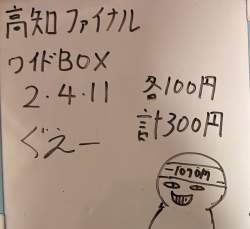 高知ファイナル
ワイドBOX
2・4・11 各100円
ぐえー 計300円
-1070円